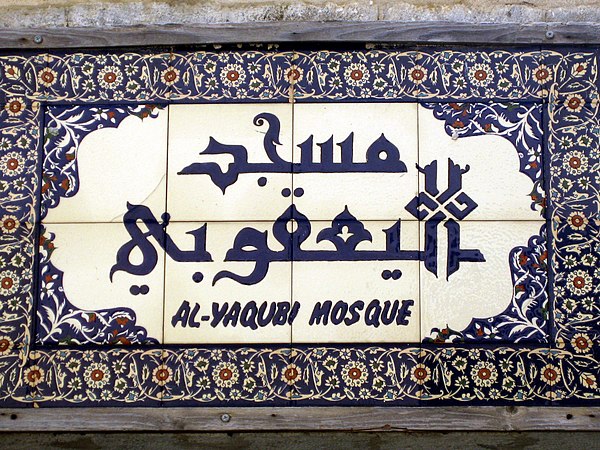 مسجد
اليعقوبي
AL-YAQUBI MOSQUE